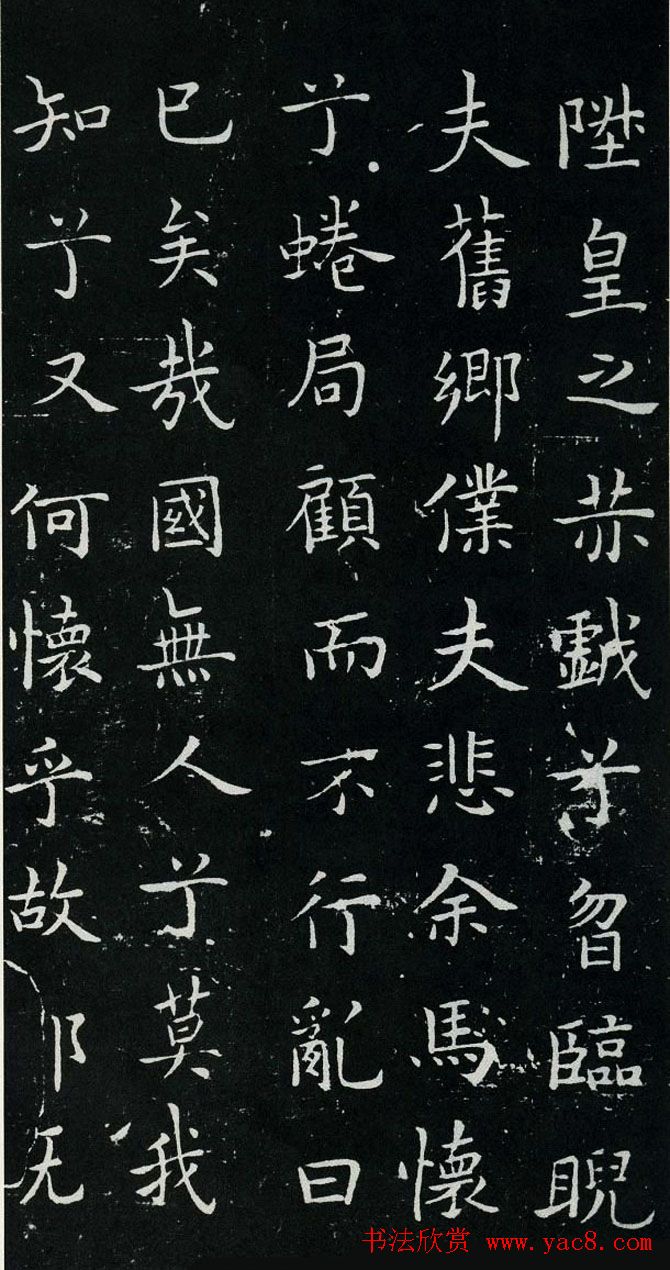 陞皇之戲兮曶臨睨
夫舊鄉僕夫悲余馬懷
兮蜷局顧而不行亂曰
已矣哉國無人兮莫我
知兮又何懷乎故无
书法欣赏 www.yac8.com